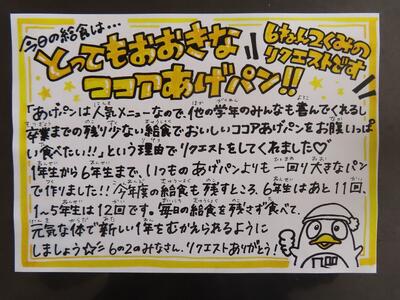 今日の給食は…
とってもおおきな
ココアあげパン!!
6ねん2くみの
リクエストです
「あげパンは人気メニューなので、他の学年のみんなも喜んでくれるし
卒業までの残り少ない給食でおいしいココアあげパンをお腹いっぱ
い食べたい!!」という理由でリクエストをしてくれました♡
1年生から6年生まで、いつものあげパンよりも一回り大きなパン
で作りました!!今年度の給食も残すところ、6年生はあと11回、
1〜5年生は12回です。毎日の給食を残さず食べて、
元気な体で新しい1年をむかえられるように
しましょう☆彡 6の2のみなさん、リクエストありがとう!